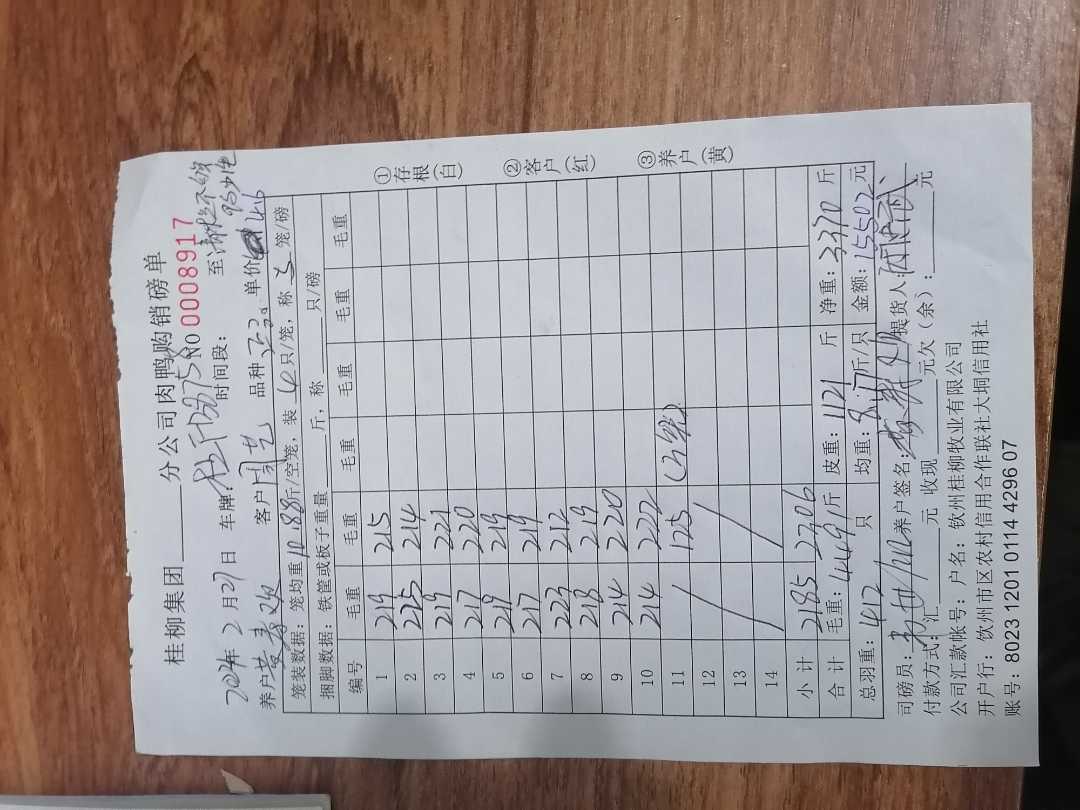 桂柳集团______分公司肉鸭购销磅单
2024年2月27日 车牌： NO 0008917
时间段： 至
养户 客户 品种 单价
笼装数据：笼均重10.188斤/空笼，装4只/笼，称5笼/磅
捆脚数据：铁筐或板子重量____斤，称____只/磅
编号 毛重 毛重 毛重 毛重 毛重
1 219 215
2 225 214
3 219 221
4 217 220
5 219 219
6 217 219
7 223 212
8 218 219
9 214 220
10 214 222
11 / 125
12 / /
13
14
小计 2185 2306
合计 毛重：4491斤 皮重：1121斤 净重：3370斤
总羽重：412只 均重：8.17斤/只 金额：15502元
司磅员： 养户签名： 提货人：
付款方式：汇____元 收现____元欠（余）：____元
公司汇款帐号：户名：钦州桂柳牧业有限公司
开户行：钦州市区农村信用合作联社大垌信用社
账号：8023 1201 0114 4296 07
①存根（白）
②客户（红）
③养户（黄）